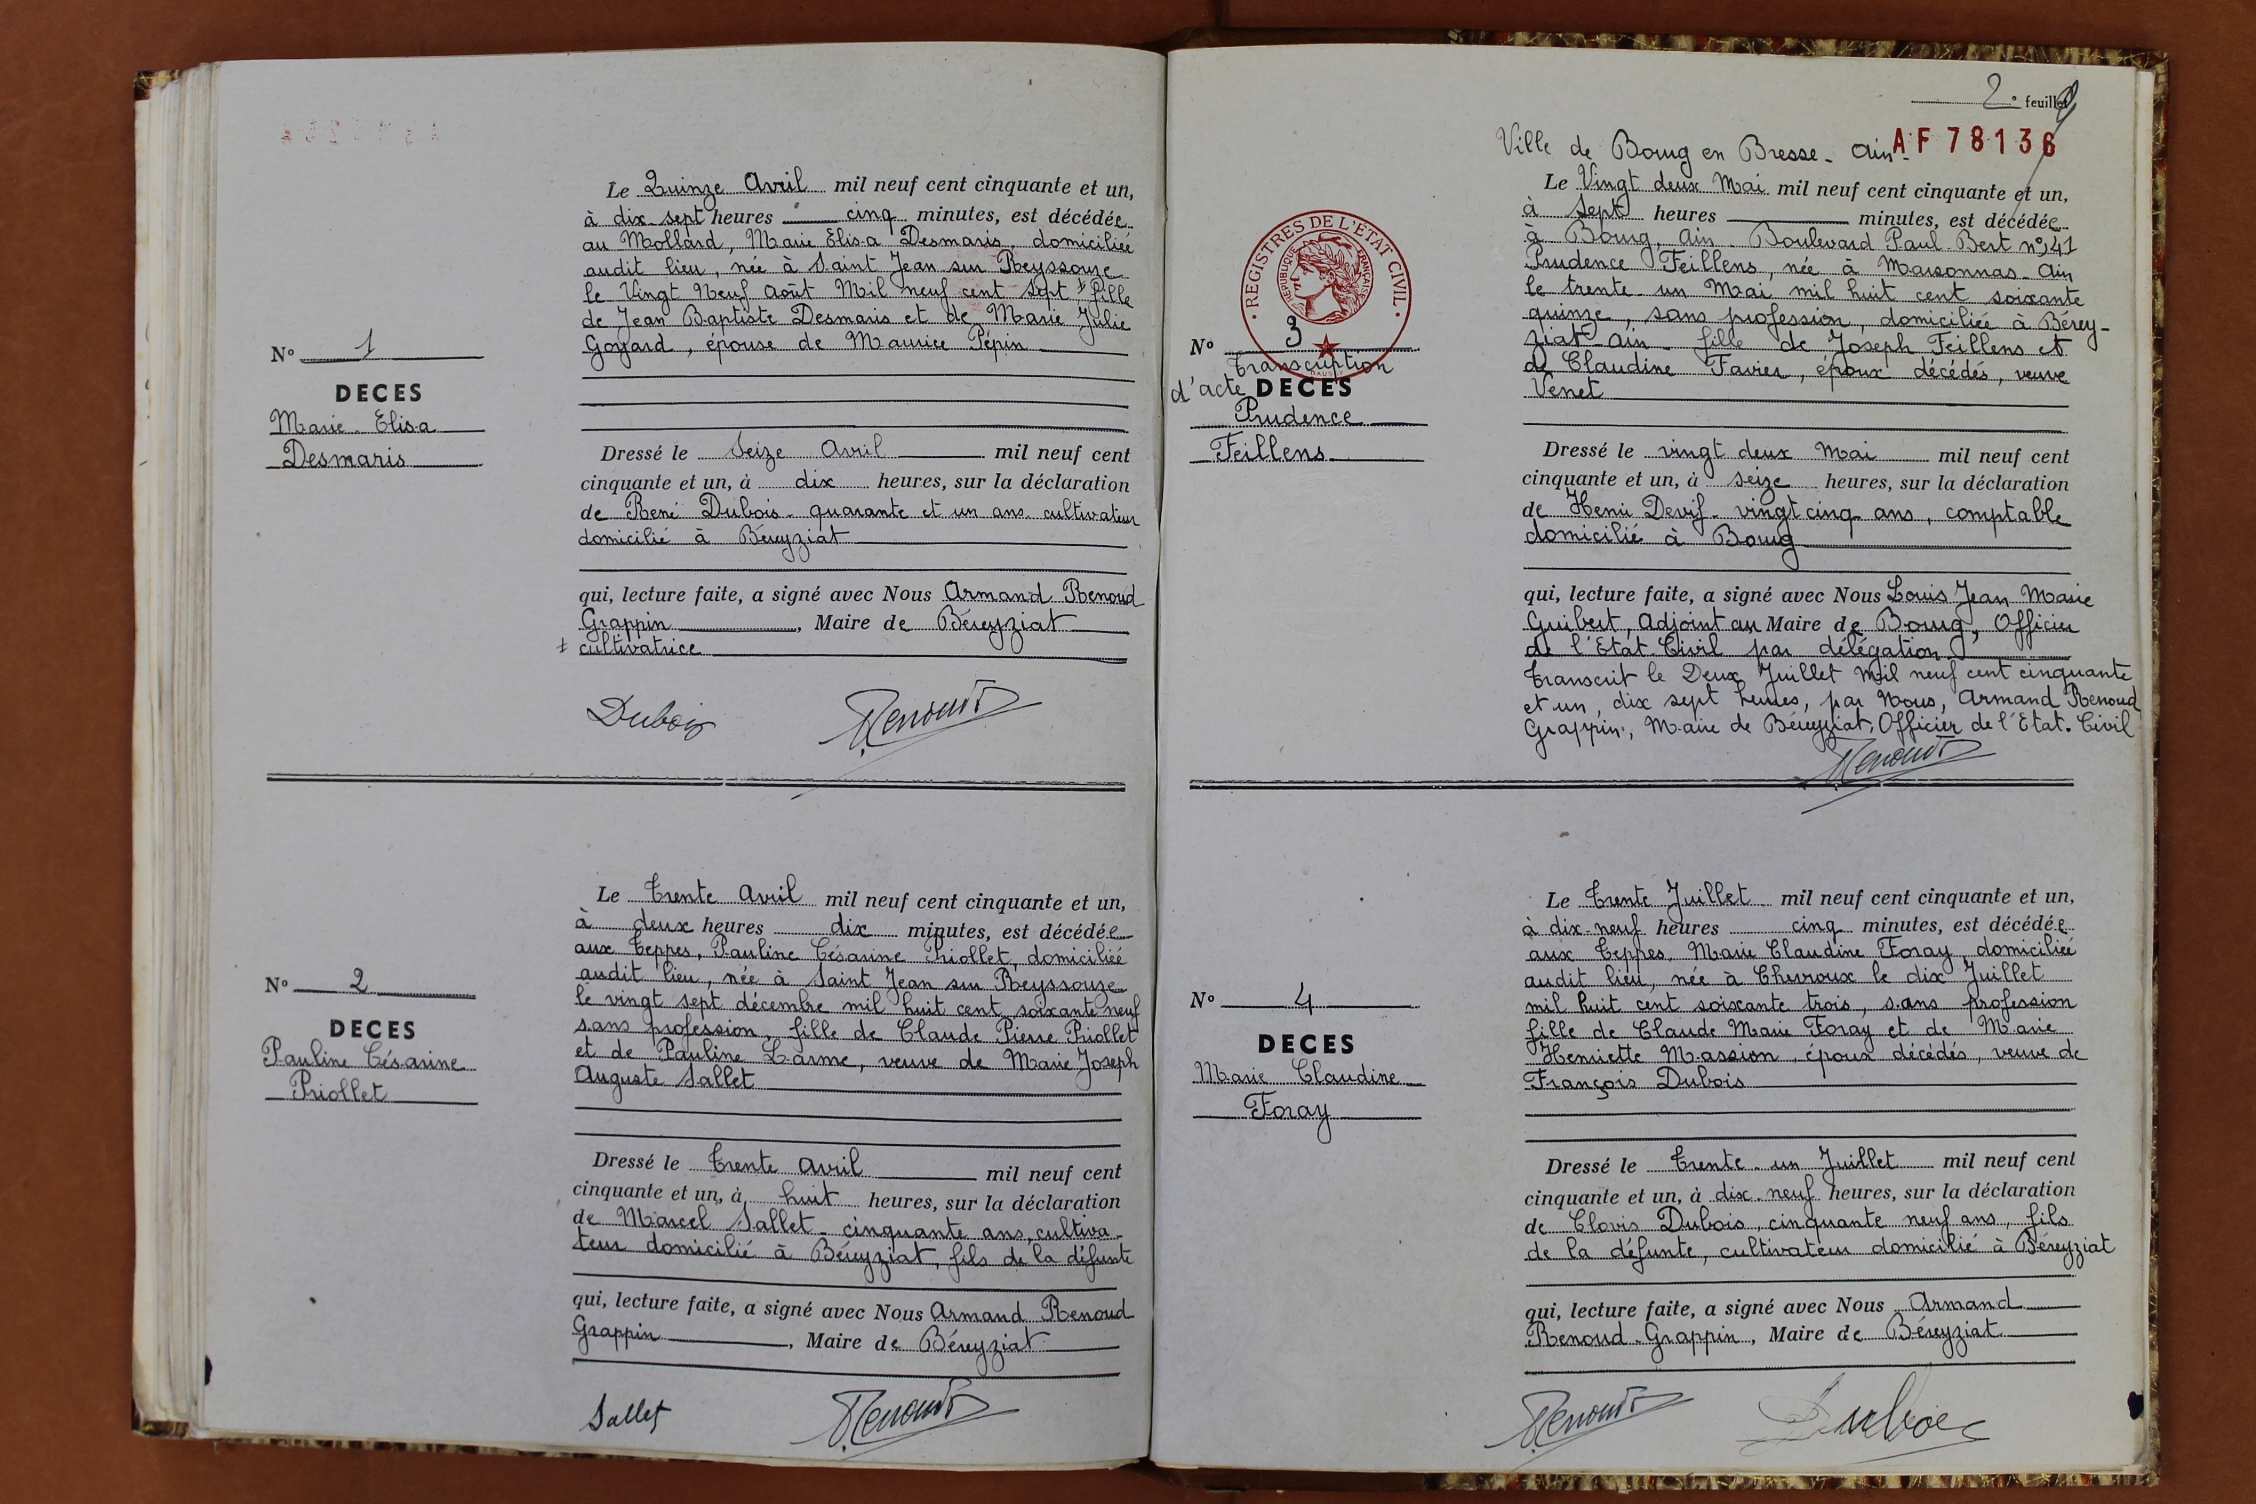 N° 1
DECES
Marie Elisa
Desmaris
Le Quinze Avril mil neuf cent cinquante et un,
à dix sept heures cinq minutes, est décédée
au Mollard, Marie Elisa Desmaris, domiciliée
audit lieu, née à Saint Jean sur Reyssouze
le Vingt Neuf Août Mil neuf cent sept ‡ fille
de Jean Baptiste Desmaris et de Marie Julie
Goyard, épouse de Maurice Pépin
Dressé le Seize Avril mil neuf cent
cinquante et un, à dix heures, sur la déclaration
de René Dubois quarante et un ans cultivateur
domicilié à Béreyziat
qui, lecture faite, a signé avec Nous Armand Renoud
Grappin, Maire de Béreyziat
‡ cultivatrice
Dubois
Renoud
N° 2
DECES
Pauline Césarine
Priollet
Le Trente Avril mil neuf cent cinquante et un,
à deux heures dix minutes, est décédée
aux Teppes, Pauline Césarine Priollet, domiciliée
audit lieu, née à Saint Jean sur Reyssouze
le vingt sept décembre mil huit cent soixante neuf
sans profession, fille de Claude Pierre Priollet
et de Pauline Larme, veuve de Marie Joseph
Auguste Sallet
Dressé le Trente Avril mil neuf cent
cinquante et un, à huit heures, sur la déclaration
de Marcel Sallet cinquante ans, cultiva-
teur domicilié à Béreyziat, fils de la défunte
qui, lecture faite, a signé avec Nous Armand Renoud
Grappin, Maire de Béreyziat
Sallet
Renoud
2e feuillet
AF 78136
Ville de Bourg en Bresse - Ain -
REGISTRES DE L'ETAT CIVIL
REPUBLIQUE FRANÇAISE
N° 3
Transcription
d'acte DECES
Prudence
Feillens
Le Vingt deux Mai mil neuf cent cinquante et un,
à Sept heures minutes, est décédée
à Bourg, Ain Boulevard Paul-Bert n° 41
Prudence Feillens, née à Marsonnas - Ain
le trente un Mai mil huit cent soixante
quinze, sans profession, domiciliée à Bérey-
ziat Ain - fille de Joseph Feillens et
de Claudine Favier, époux décédés, veuve
Venet
Dressé le vingt deux Mai mil neuf cent
cinquante et un, à seize heures, sur la déclaration
de Henri Devif - vingt cinq ans, comptable
domicilié à Bourg
qui, lecture faite, a signé avec Nous Louis Jean Marie
Guibert, Adjoint au Maire de Bourg, Officier
de l'Etat Civil par délégation
Transcrit le Deux Juillet Mil neuf cent cinquante
et un, dix sept heures, par Nous, Armand Renoud
Grappin, Maire de Béreyziat, Officier de l'Etat. Civil
Renoud
N° 4
DECES
Marie Claudine
Foray
Le Trente Juillet mil neuf cent cinquante et un,
à dix-neuf heures cinq minutes, est décédée
aux Teppes, Marie Claudine Foray domiciliée
audit lieu, née à Chevroux le dix Juillet
mil huit cent soixante trois, sans profession
fille de Claude Marie Foray et de Marie
Henriette Massion, époux décédés, veuve de
François Dubois
Dressé le Trente un Juillet mil neuf cent
cinquante et un, à dix neuf heures, sur la déclaration
de Clovis Dubois, cinquante neuf ans, fils
de la défunte, cultivateur domicilié à Béreyziat
qui, lecture faite, a signé avec Nous Armand
Renoud-Grappin, Maire de Béreyziat
Renoud
Dubois